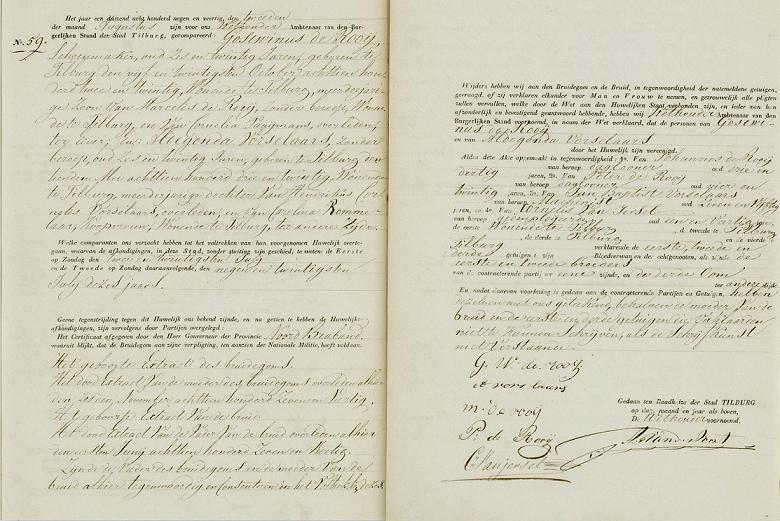 Het jaar een duizend acht honderd negen en veertig, den tweeden
der maand Augustus zijn voor ons Wethouder Ambtenaar van den Bur-
gerlijken Stand der Stad Tilburg, gecompareerd: Goswinus de Rooij,
No. 59.
oud zes en twintig Jaren, geboren te
Tilburg den vijf en twintigsten October achttien hon
derd twee en twintig, Wonende te Tilburg, meerderjari
ge Zoon van de Rooij, zonder beroep, Wonen
de te Tilburg, en van Cornelia overleden,
ter eenre; en Aldegonda Vorselaars, Zonder
beroep, oud zes en twintig Jaren, geboren te Tilburg den
Mei achttien honderd drie en twintig, Wonende
te Tilburg, meerderjarige dochter van Hendrikus Cor
nelis Vorselaars, overleden, en van Romme-
laar, Wonende te Tilburg, ter andere Zijde.
Welke comparanten ons verzocht hebben tot het voltrekken van hun voorgenomen Huwelijk overte-
gaan, waarvan de afkondigingen, in deze Stad, zonder stuiting zijn geschied, te weten de Eerste
op Zondag den twee en twintigsten Julij
en de Tweede op Zondag daaraanvolgende, den negen en twintigsten
Julij dezes jaars.
Geene tegenstrijding tegen dit Huwelijk ons bekend zijnde, en na gezien te hebben de Huwelijks
afkondigingen, zijn vervolgens door Partijen overgelegd:
Het Certificaat afgegeven door den Heer Gouverneur der Provincie Noord Braband,
waaruit blijkt, dat de Bruidegom aan zijne verpligting, ten aanzien der Nationale Militie, heeft voldaan.
Het geboorte Extract des bruidegoms
Het dood Extract van de moeder des bruidegoms overleden alhier
den zesden November achttien honderd zeven en veertig.
Het geboorte Extract van de bruid
Het dood Extract van de vader van de bruid overleden alhier
den eersten Junij achttien honderd zeven en veertig.
Zijnde de vader des bruidegoms en de moeder van de
bruid alhier tegenwoordig en consenteren in het
Wijders hebben wij aan den Bruidegom en de Bruid, in tegenwoordigheid der natemeldene getuigen,
gevraagd, of zij verklaren elkander voor Man en Vrouw te nemen, en getrouwelijk alle pligten
zullen vervullen, welke door de Wet aan den Huwelijken Staat verbonden zijn, en ieder van hen
afzonderlijk en bevestigend geantwoord hebbende, hebben wij Wethouder Ambtenaar van den
Burgerlijken Stand voornoemd, in naam der Wet verklaard, dat de personen van Goswi-
nus de Rooij
en van Aldegonda Vorselaars
door het Huwelijk zijn vereenigd.
Aldus deze Akte opgemaakt in tegenwoordigheid: 1o. Van Johannes de Rooij
van beroep daglooner oud drie en
dertig jaren, 2o. Van Peter de Rooij
van beroep daglooner oud vier en
twintig jaren, 3o. Van Jan Baptist Vorselaars
van beroep Machinist oud zeven en vijftig
jaren, en 4o. Van Cornelis van Iersel
van beroep oud een en veertig jaren,
de eerste Wonende te Tilburg, de tweede te Tilburg
, de derde te Tilburg en de vierde te
Tilburg verklarende de eerste, tweede en
derde getuigen te zijn Bloedverwan en der echtgenooten, als zijnde de
eerste en tweede broeders
van de contracterende partij ter eene zijnde, en de derde Oom
ter andere zijde.
En nadat daarvan voorlezing is gedaan aan de contracterende Partijen en Getuigen, hebben
dezelven met ons geteekend, behalven de moeder van de
bruid en de eerste en derde getuigen die verklaarden
niet te kunnen schrijven, als de Schrijfkunst
niet verstaande.
G. W. de rooij
vorslaars
m. de rooij
P. de Rooij
C. Vanjersel
Gedaan ten Raadhuize der Stad TILBURG
op dag, maand en jaar als boven,
De Wethouder voornoemd.